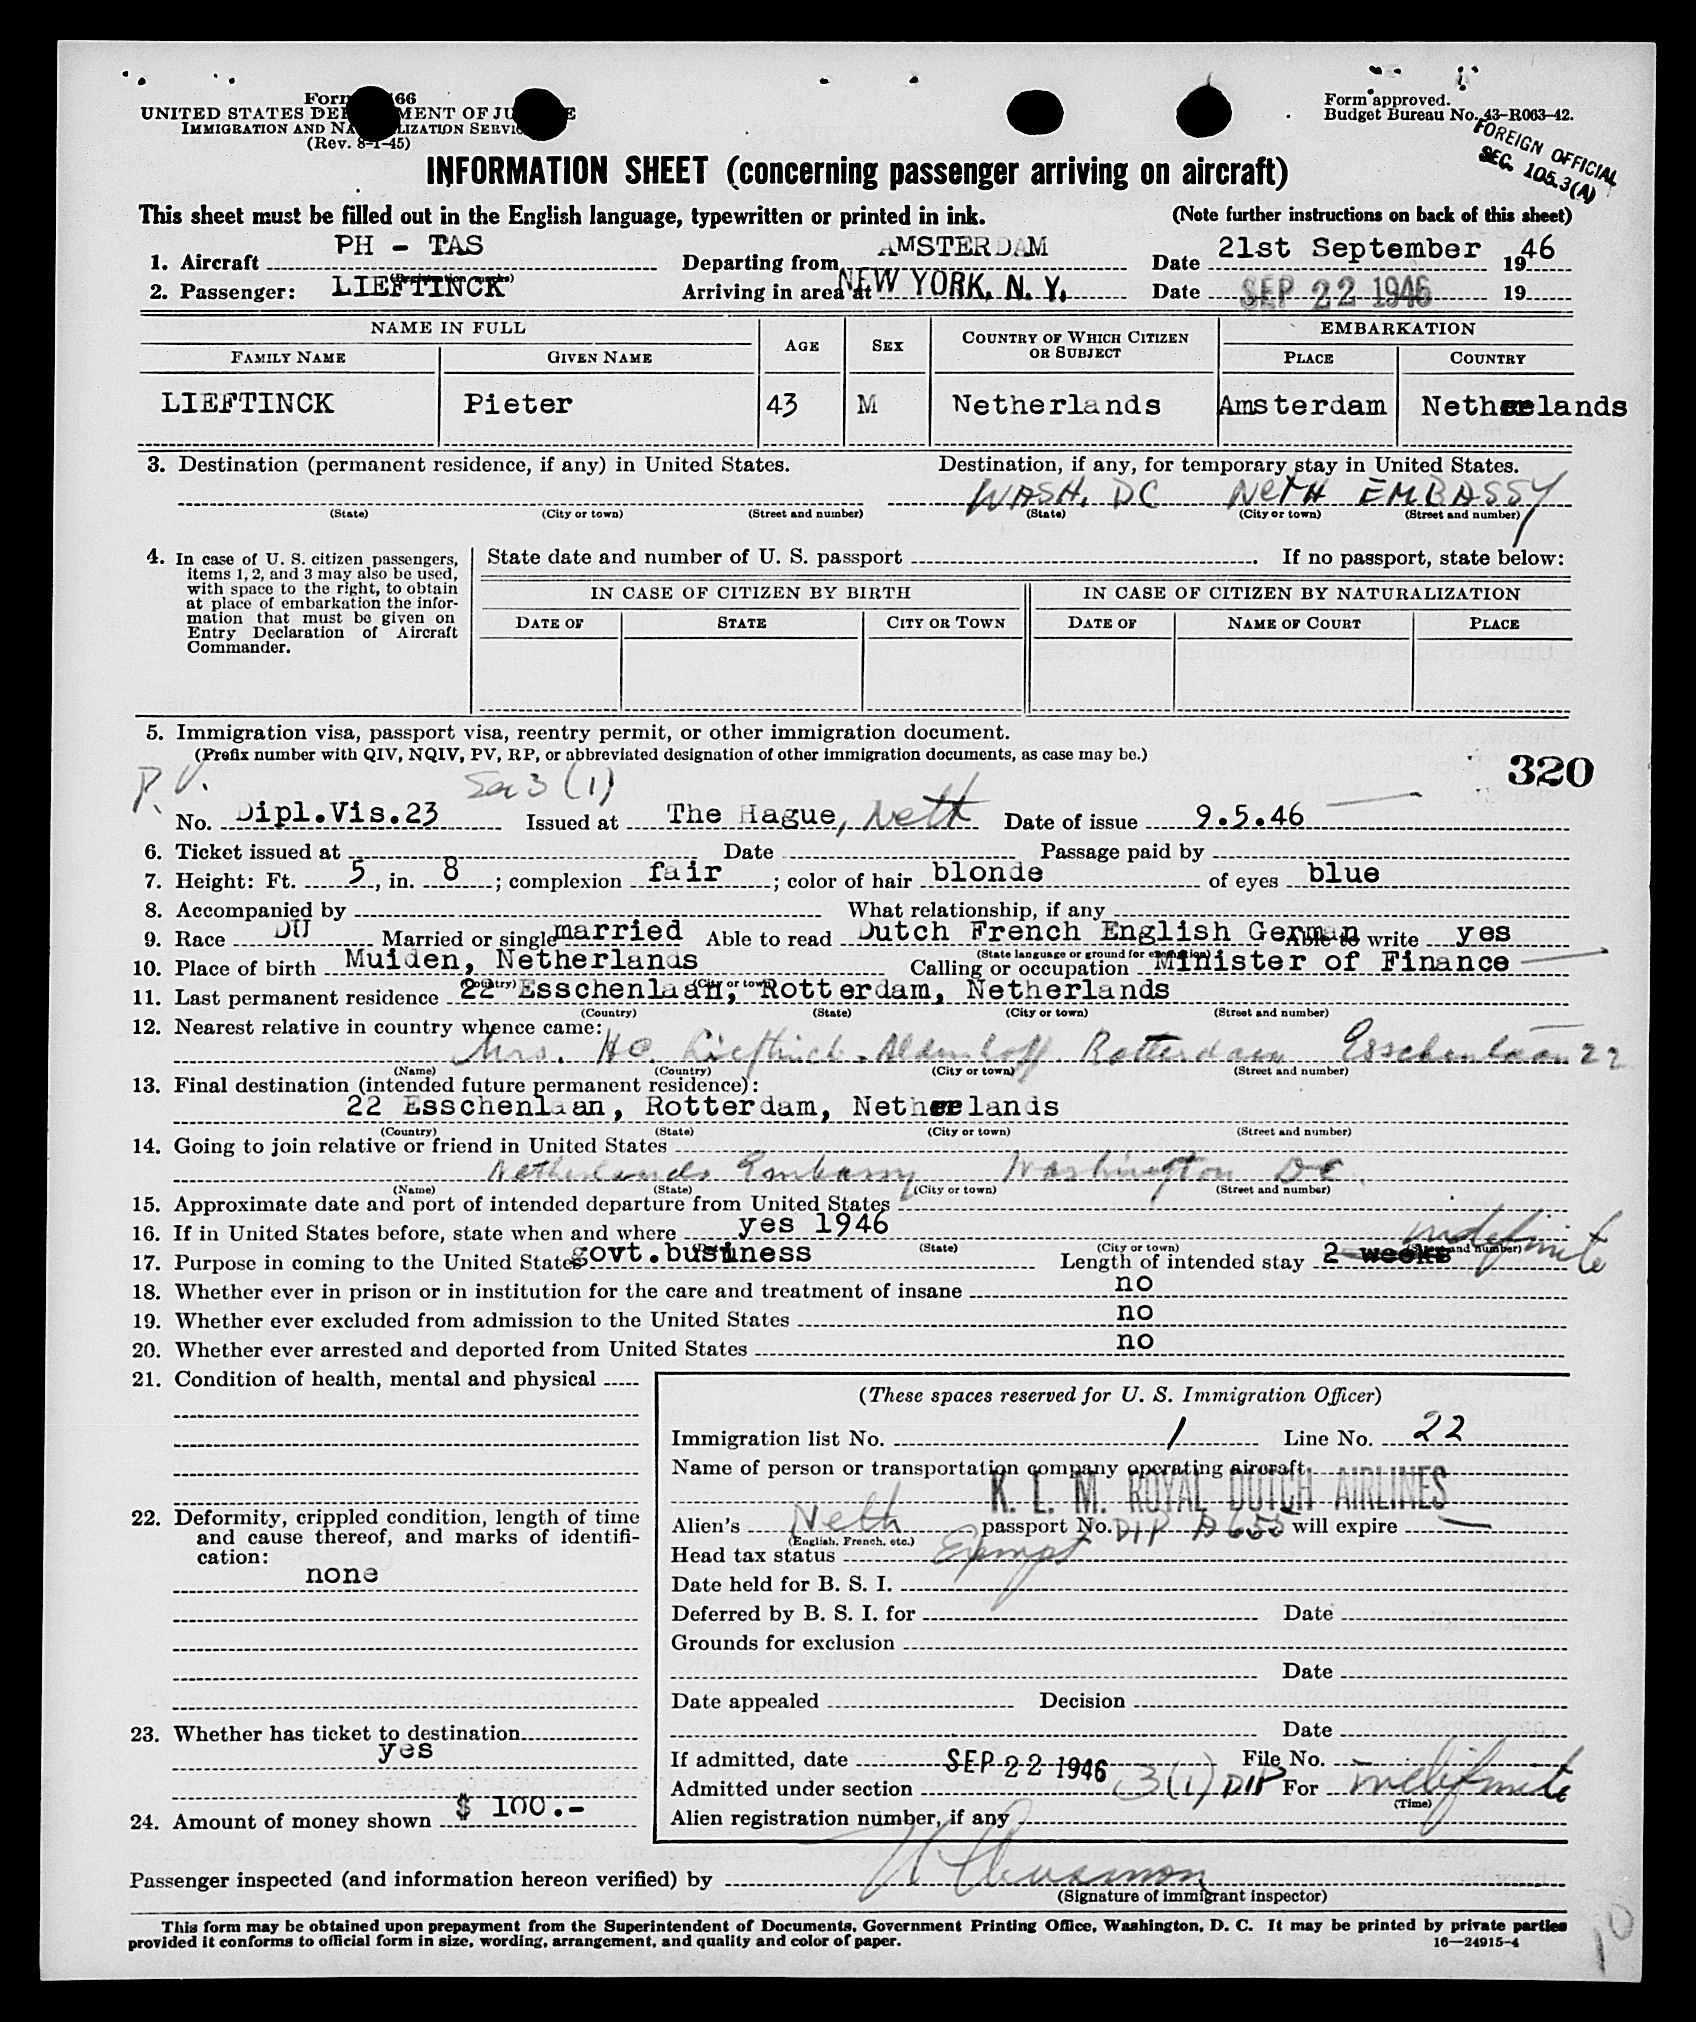 Form 66
UNITED STATES DEPARTMENT OF JUSTICE
IMMIGRATION AND NATURALIZATION SERVICE
(Rev. 8-1-45)
Form approved.
Budget Bureau No. 43-R063-42.
FOREIGN OFFICIAL
SEC. 105.3(A)
INFORMATION SHEET (concerning passenger arriving on aircraft)
This sheet must be filled out in the English language, typewritten or printed in ink. (Note further instructions on back of this sheet)
1. Aircraft PH - TAS Departing from AMSTERDAM Date 21st September 1946
(Registration marks)
2. Passenger: LIEFTINCK Arriving in area at NEW YORK, N. Y. Date SEP 22 1946 19
NAME IN FULL AGE SEX COUNTRY OF WHICH CITIZEN OR SUBJECT EMBARKATION
FAMILY NAME GIVEN NAME PLACE COUNTRY
LIEFTINCK Pieter 43 M Netherlands Amsterdam Netherlands
3. Destination (permanent residence, if any) in United States. Destination, if any, for temporary stay in United States.
WASH. DC NETH EMBASSY
(State) (City or town) (Street and number) (State) (City or town) (Street and number)
4. In case of U. S. citizen passengers, items 1, 2, and 3 may also be used, with space to the right, to obtain at place of embarkation the information that must be given on Entry Declaration of Aircraft Commander.
State date and number of U. S. passport . If no passport, state below:
IN CASE OF CITIZEN BY BIRTH IN CASE OF CITIZEN BY NATURALIZATION
DATE OF STATE CITY OR TOWN DATE OF NAME OF COURT PLACE
5. Immigration visa, passport visa, reentry permit, or other immigration document.
(Prefix number with QIV, NQIV, PV, RP, or abbreviated designation of other immigration documents, as case may be.)
320
P.V. Sec 3 (1)
No. Dipl.Vis.23 Issued at The Hague, Neth Date of issue 9.5.46
6. Ticket issued at Date Passage paid by
7. Height: Ft. 5, in. 8; complexion fair; color of hair blonde of eyes blue
8. Accompanied by What relationship, if any
9. Race DU Married or single married Able to read Dutch French English German Able to write yes
(State language or ground for exemption)
10. Place of birth Muiden, Netherlands Calling or occupation Minister of Finance
(Country) (City or town)
11. Last permanent residence 22 Esschenlaan, Rotterdam, Netherlands
(Country) (State) (City or town) (Street and number)
12. Nearest relative in country whence came:
Mrs. HC. Lieftinck-Aldenhoff Rotterdam Esschenlaan 22
(Name) (Country) (City or town) (Street and number)
13. Final destination (intended future permanent residence):
22 Esschenlaan, Rotterdam, Netherlands
(Country) (State) (City or town) (Street and number)
14. Going to join relative or friend in United States
Netherlands Embassy Washington DC.
(Name) (State) (City or town) (Street and number)
15. Approximate date and port of intended departure from United States
16. If in United States before, state when and where yes 1946
(State) (City or town) (Street and number)
17. Purpose in coming to the United States govt.business Length of intended stay 2 weeks indefinite
18. Whether ever in prison or in institution for the care and treatment of insane no
19. Whether ever excluded from admission to the United States no
20. Whether ever arrested and deported from United States no
21. Condition of health, mental and physical
22. Deformity, crippled condition, length of time and cause thereof, and marks of identification:
none
23. Whether has ticket to destination
yes
24. Amount of money shown $ 100.-
(These spaces reserved for U. S. Immigration Officer)
Immigration list No. 1 Line No. 22
Name of person or transportation company operating aircraft
K. L. M. ROYAL DUTCH AIRLINES
Alien's Neth passport No. DIP D 655 will expire
(English, French, etc.)
Head tax status Exempt
Date held for B. S. I.
Deferred by B. S. I. for Date
Grounds for exclusion
Date
Date appealed Decision
Date
If admitted, date SEP 22 1946 File No.
Admitted under section 3(1) DIP For indefinite
(Time)
Alien registration number, if any
Passenger inspected (and information hereon verified) by
(Signature of immigrant inspector)
This form may be obtained upon prepayment from the Superintendent of Documents, Government Printing Office, Washington, D. C. It may be printed by private parties
provided it conforms to official form in size, wording, arrangement, and quality and color of paper. 16—24915-4
10